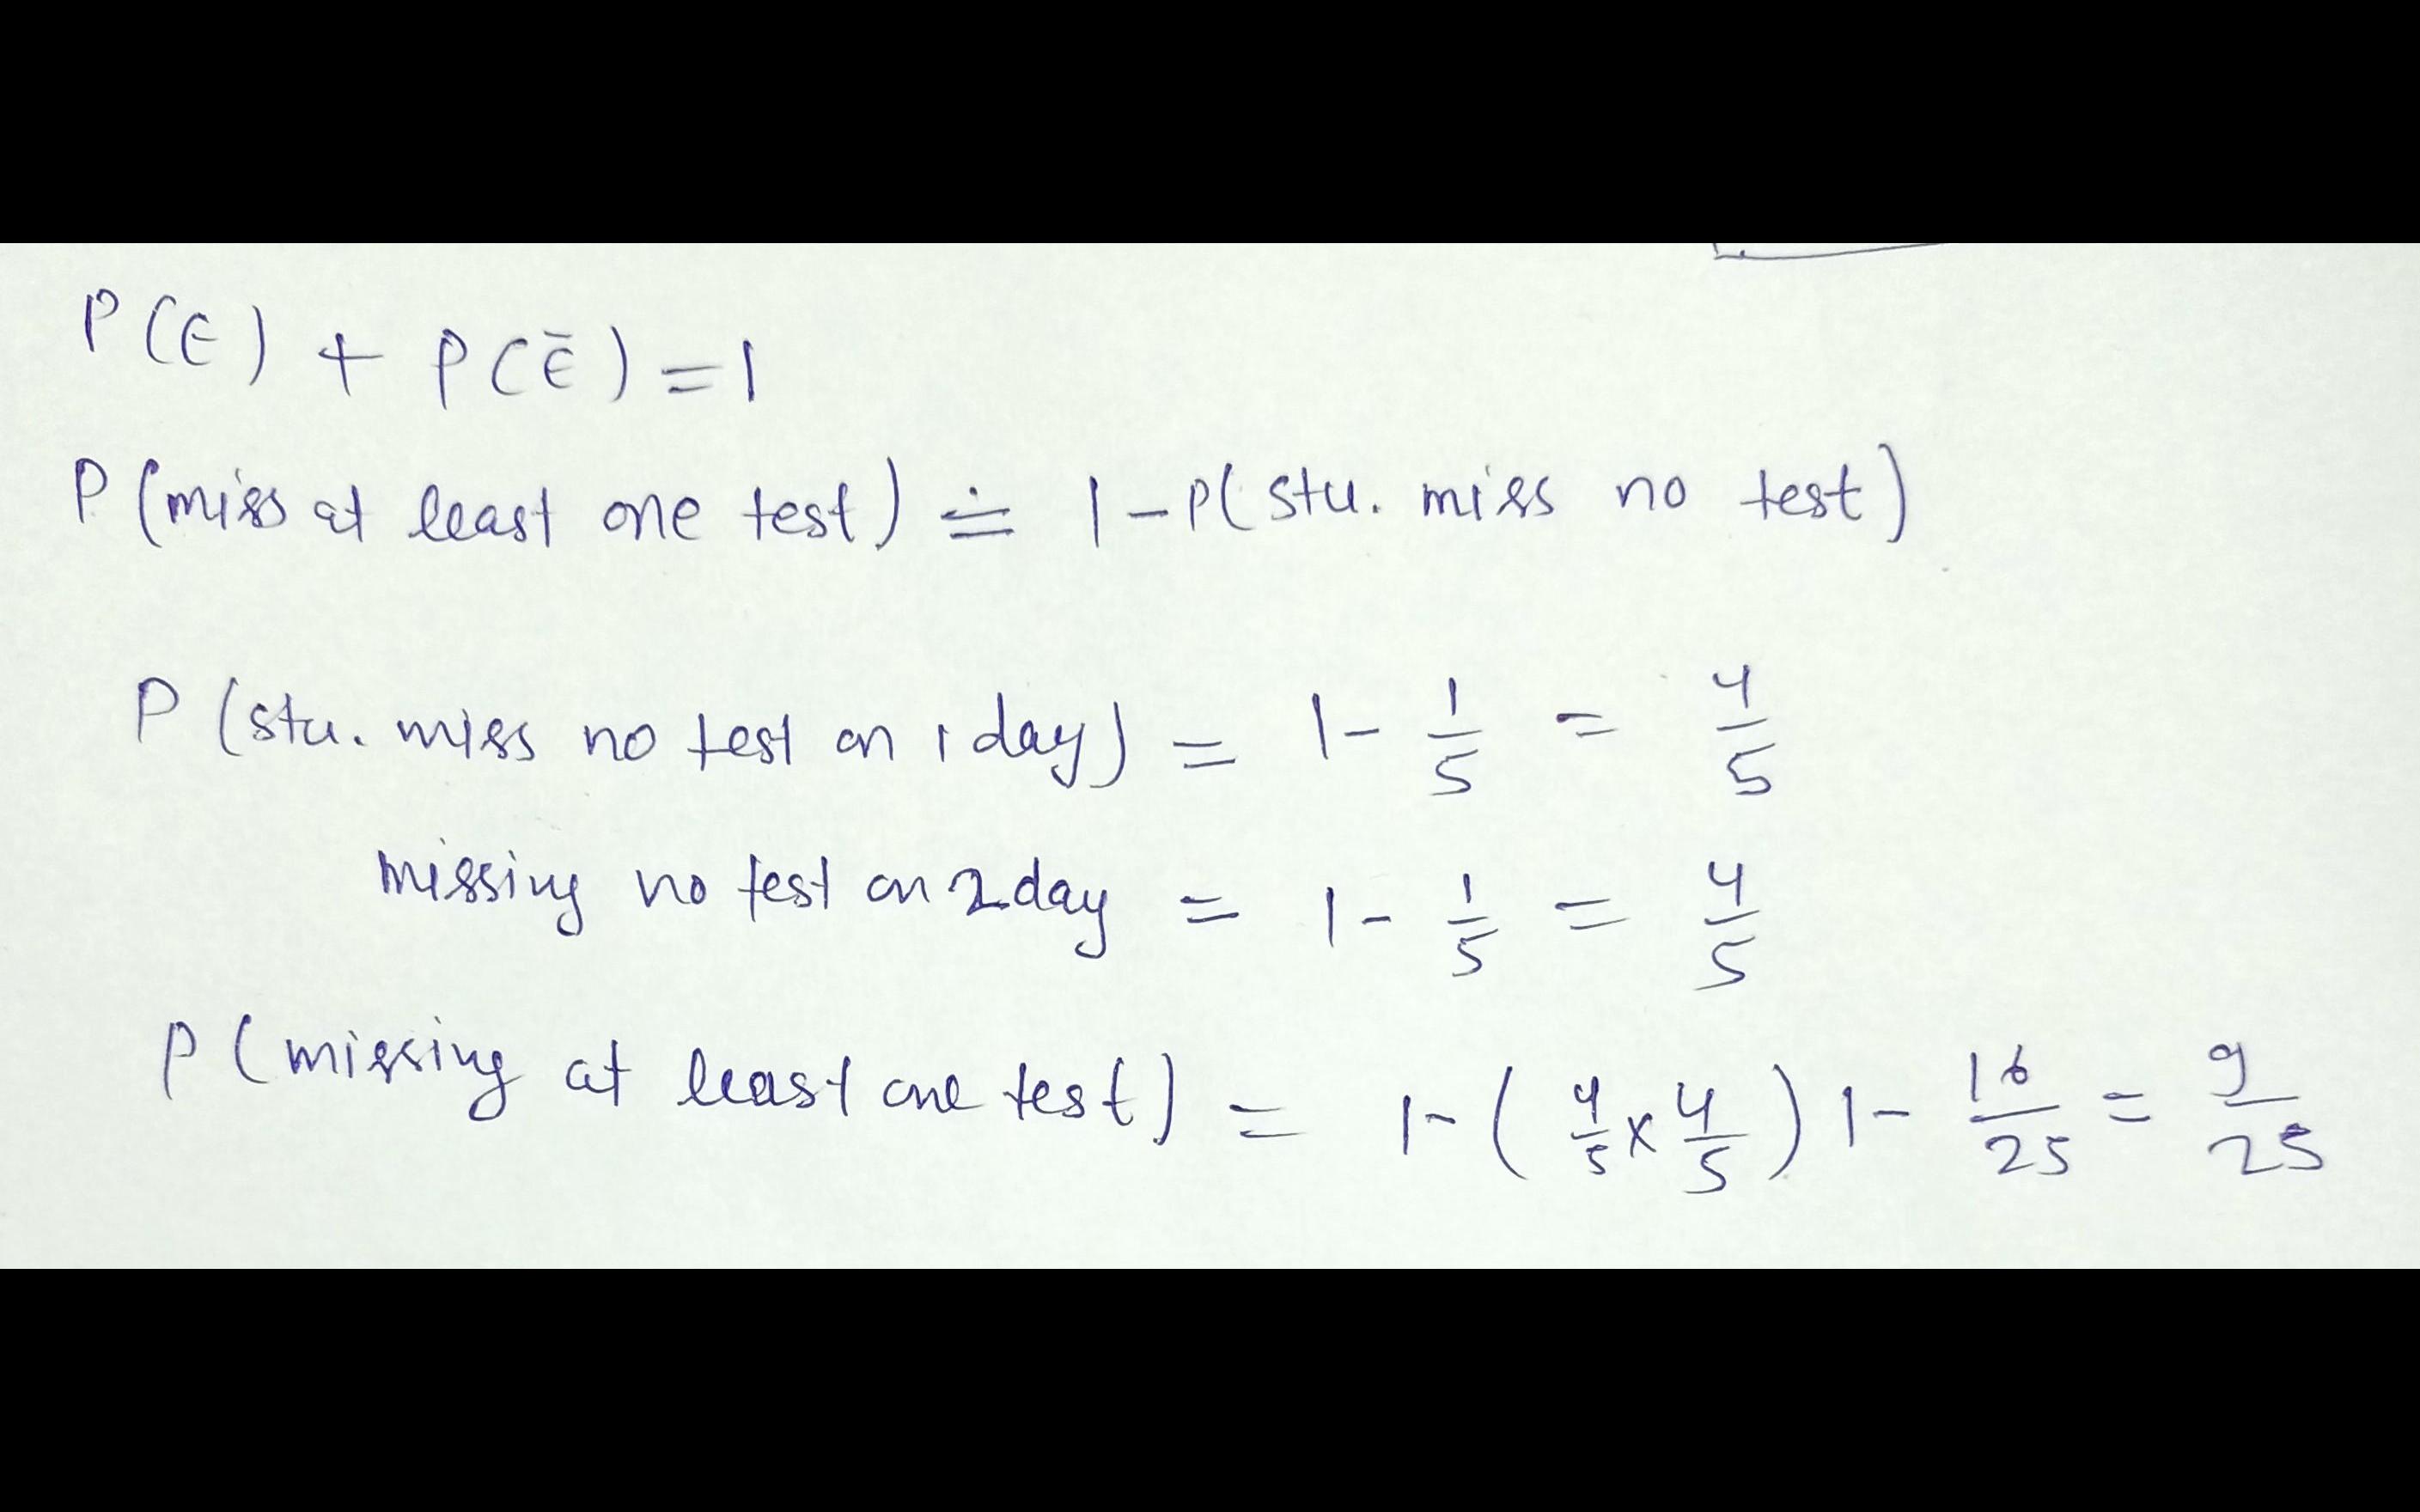 P(E) + P(Ē) = 1
P(miss at least one test) = 1 - P(stu. miss no test)
P(stu. miss no test on 1 day) = 1 - 1/5 = 4/5
missing no test on 2 day = 1 - 1/5 = 4/5
P(missing at least one test) = 1 - (4/5 x 4/5) 1 - 16/25 = 9/25